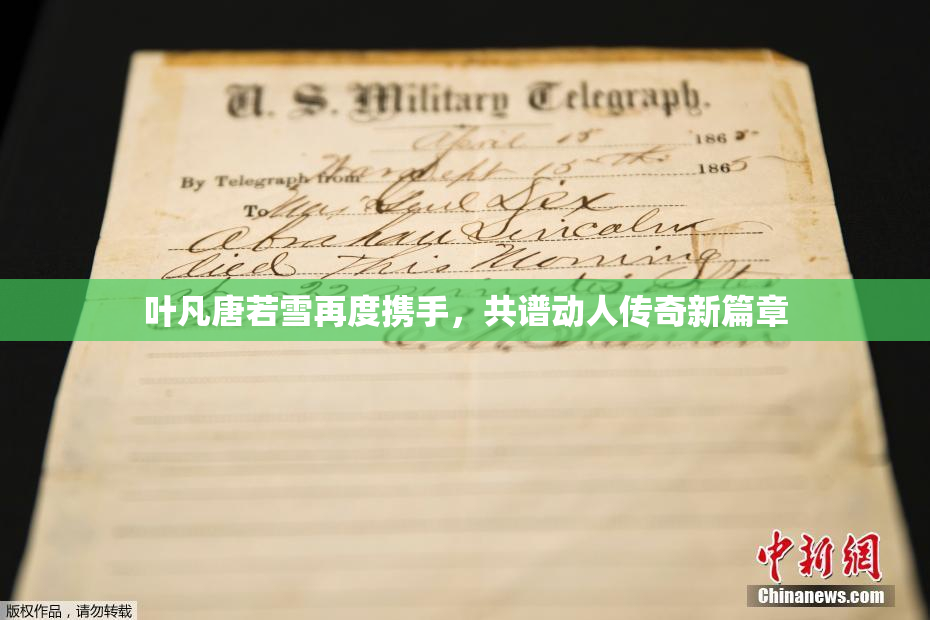 U. S. Military Telegraph.
April 15 1865
By Telegraph from War Dept 15th 1865
To Maj Genl Dix
Abraham Lincoln
died This Morning
22 minutes after
叶凡唐若雪再度携手，共谱动人传奇新篇章
E. M. Stanton
中新网
Chinanews.com
版权作品，请勿转载